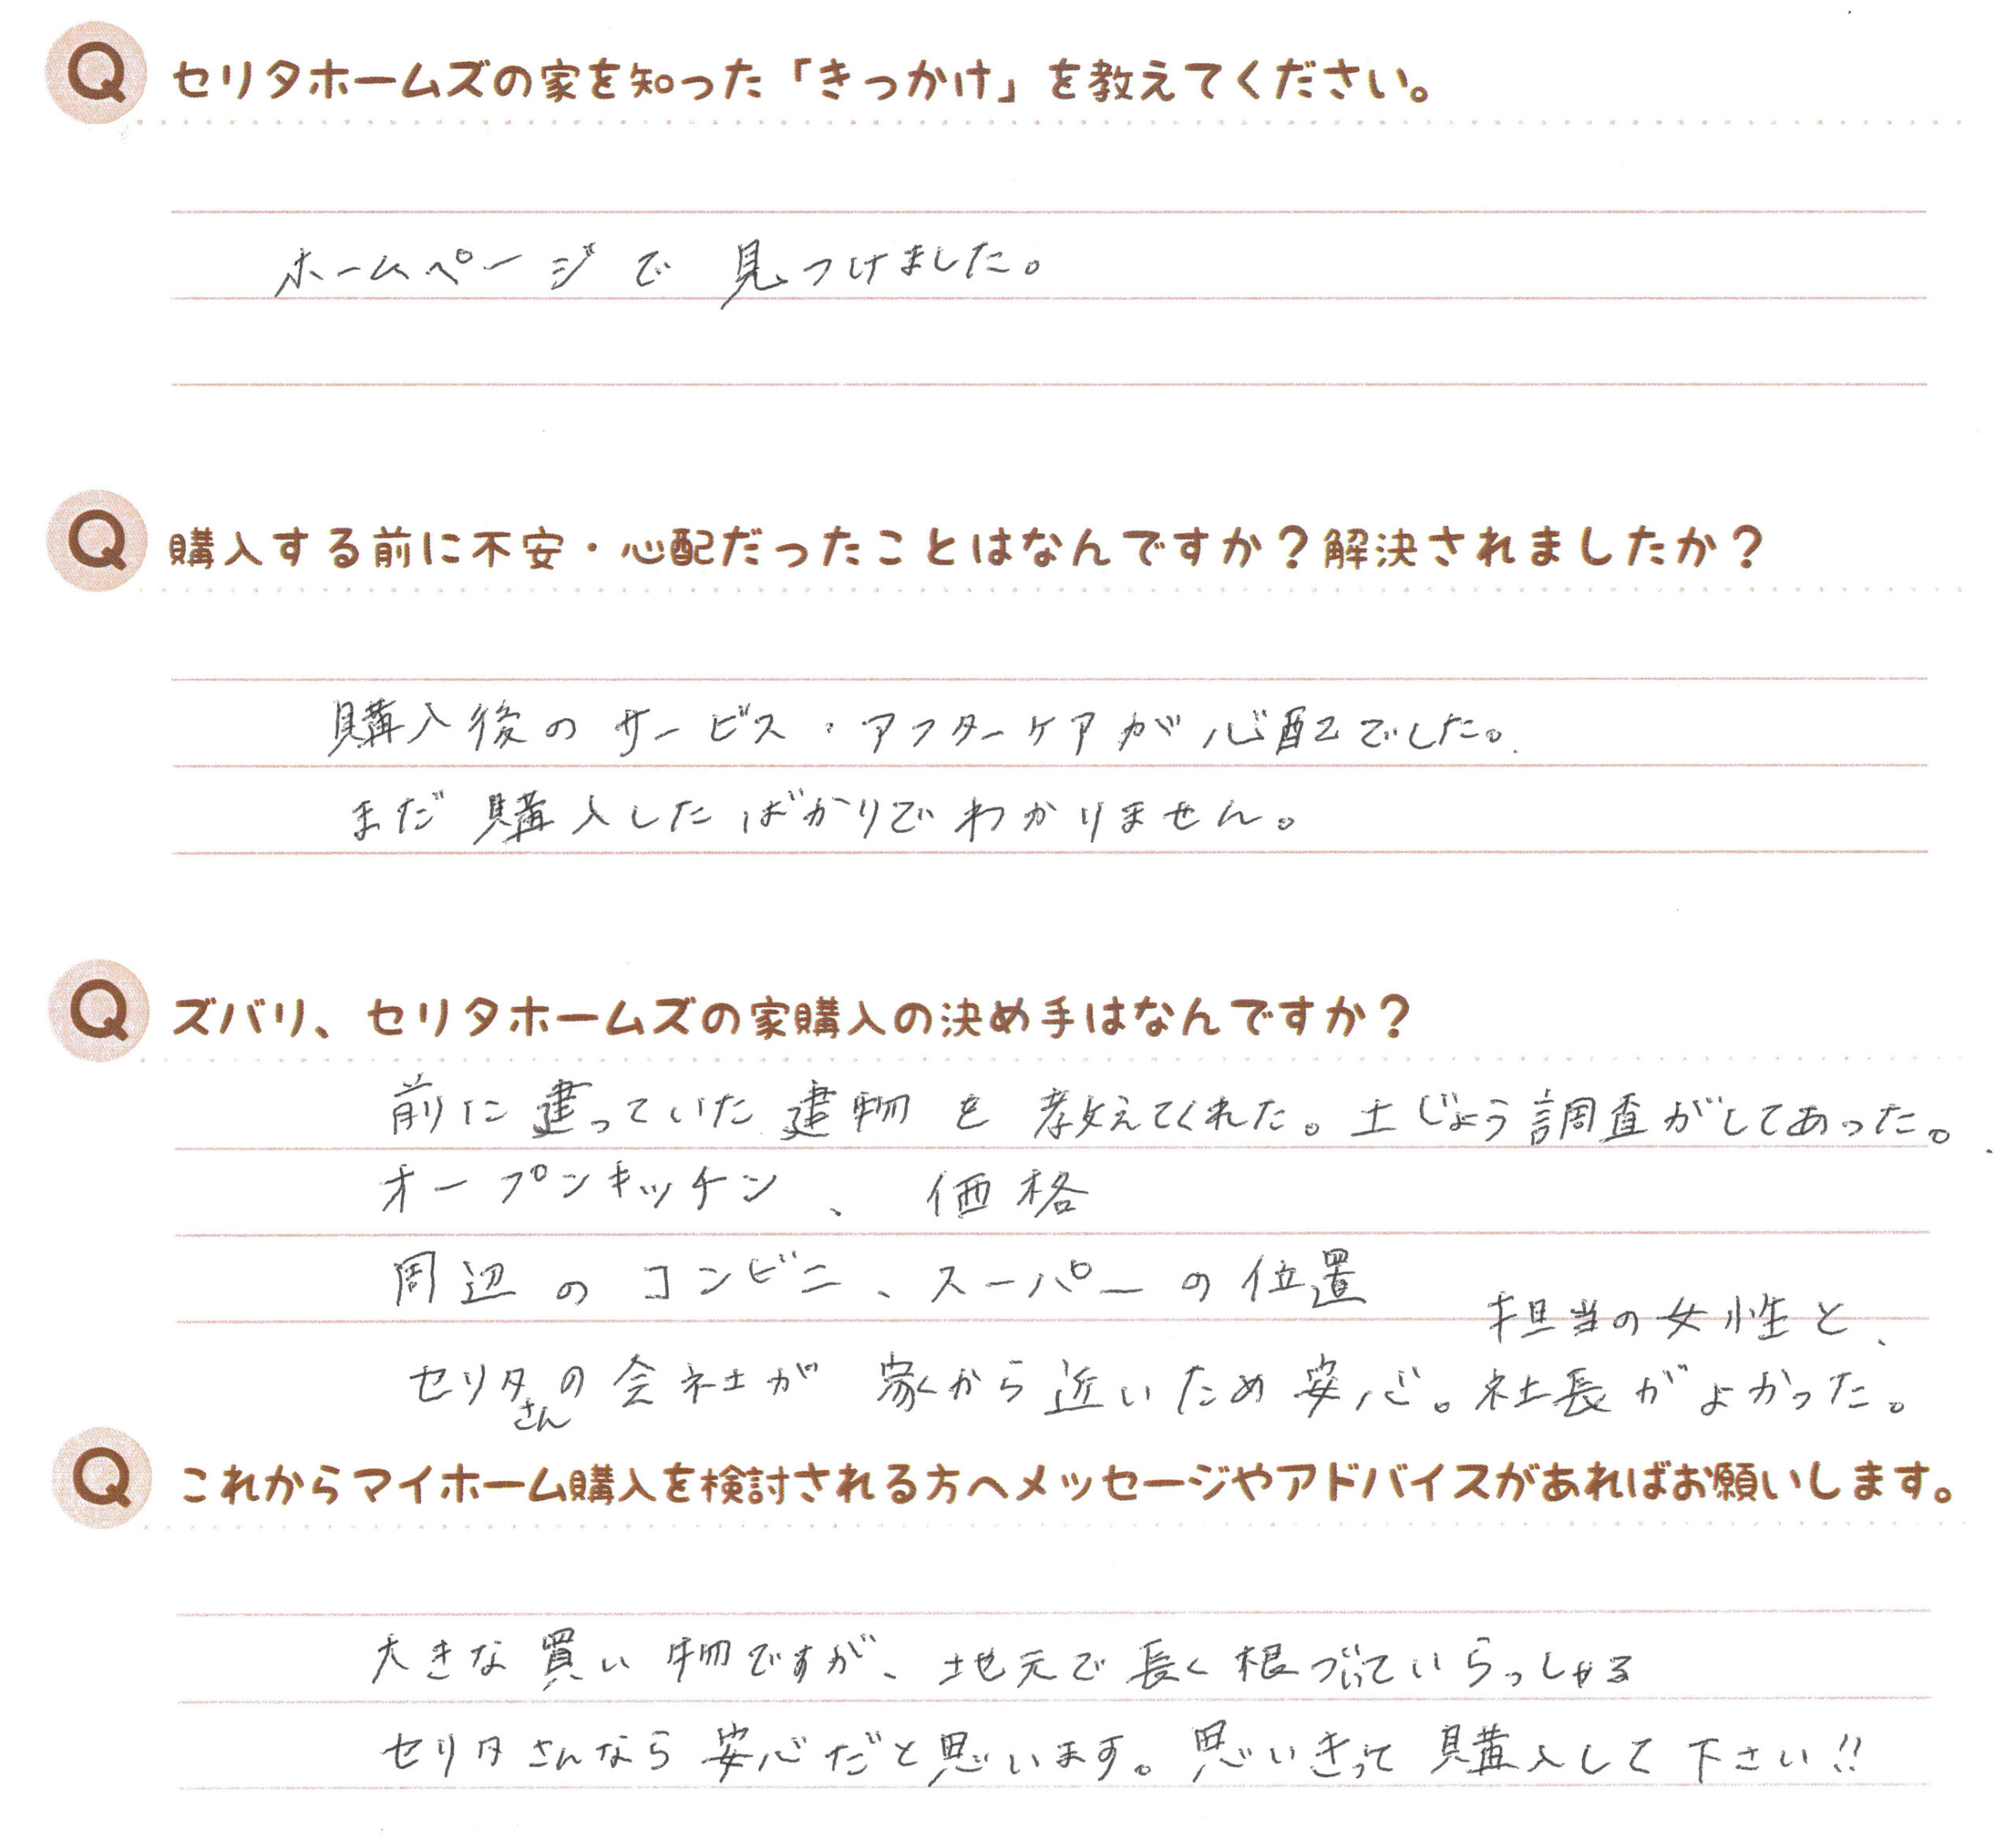 Q セリタホームズの家を知った「きっかけ」を教えてください。
ホームページで見つけました。
Q 購入する前に不安・心配だったことはなんですか？解決されましたか？
購入後のサービス・アフターケアが心配でした。
まだ購入したばかりでわかりません。
Q ズバリ、セリタホームズの家購入の決め手はなんですか？
前に建っていた建物を教えてくれた。土じょう調査がしてあった。
オープンキッチン、価格
周辺のコンビニ、スーパーの位置
セリタさんの会社が家から近いため安心。
担当の女性と、
社長がよかった。
Q これからマイホーム購入を検討される方へメッセージやアドバイスがあればお願いします。
大きな買い物ですが、地元で長く根づいていらっしゃる
セリタさんなら安心だと思います。思いきって購入して下さい!!